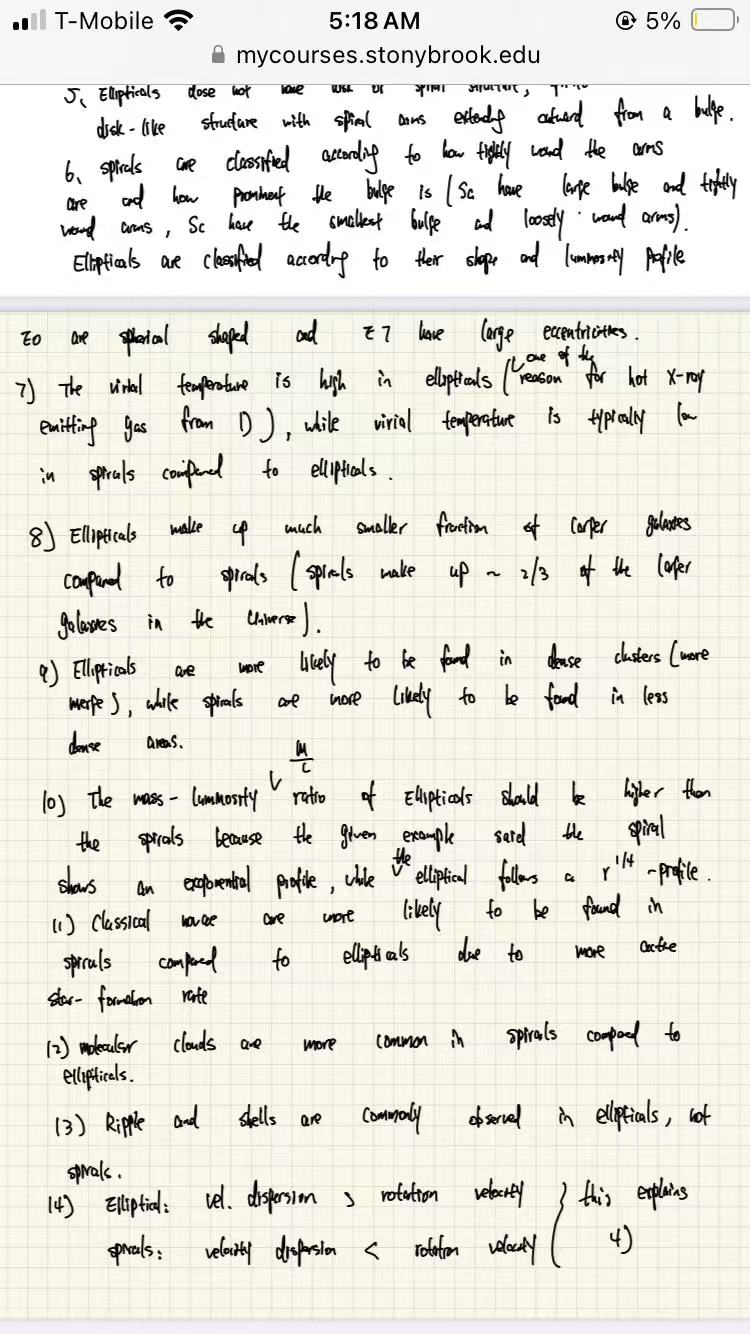 T-Mobile 5:18 AM 5%
mycourses.stonybrook.edu
5, Ellipticals dose not have disk or spiral structure,
disk-like structure with spiral arms extending outward from a bulge.
6, spirals are classified according to how tightly wond the arms
are and how prominent the bulge is (Sa have large bulge and tightly
wond arms, Sc have the smallest bulge and loosely wond arms).
Ellipticals are classified according to their shape and luminosity profile
E0 are spherical shaped and E7 have large eccentricities.
one of the
7) The virial temperature is high in ellipticals (reason for hot X-ray
emitting gas from 1)), while virial temperature is typically low
in spirals compared to ellipticals.
8) Ellipticals make up much smaller fraction of larger galaxies
compared to spirals (spirals make up ~ 2/3 of the larger
galaxies in the Universe).
9) Ellipticals are more likely to be found in dense clusters (more
merge), while spirals are more likely to be found in less
dense areas.
M/L
10) The mass-luminosity ratio of Ellipticals should be higher than
the spirals because the given example said the spiral
shows an exponential profile, while the elliptical follows a r^1/4-profile.
11) Classical novae are more likely to be found in
spirals compared to ellipticals due to more active
star-formation rate
12) molecular clouds are more common in spirals compared to
ellipticals.
13) Ripple and shells are commonly observed in ellipticals, not
spirals.
14) Elliptical: vel. dispersion > rotation velocity } this explains
spirals: velocity dispersion < rotation velocity 4)